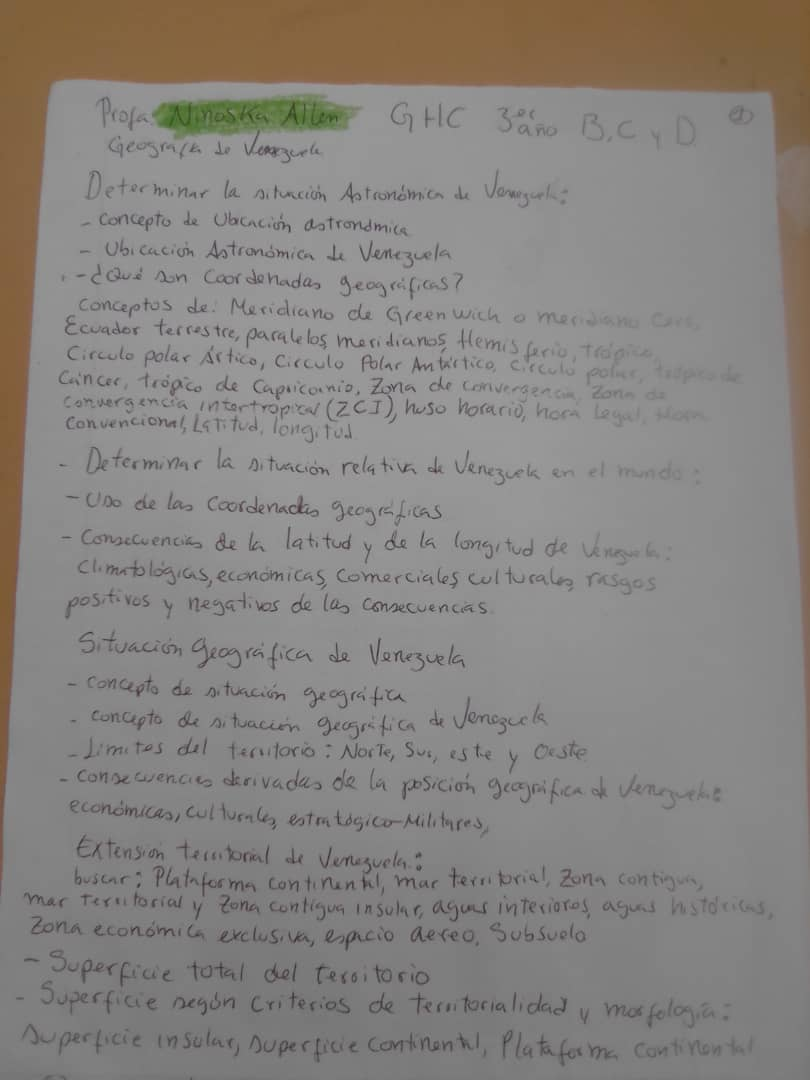 Profa. Ninoska Allen GHC 3er año B, C y D ①
Geografía de Venezuela
Determinar la situación Astronómica de Venezuela:
- Concepto de Ubicación astronómica
- Ubicación Astronómica de Venezuela
- ¿Qué son Coordenadas geográficas?
Conceptos de: Meridiano de Greenwich o meridiano Cero,
Ecuador terrestre, paralelos, meridianos, Hemisferio, trópico,
Circulo polar Ártico, Circulo Polar Antártico, Circulo polar, trópico de
Cáncer, trópico de Capricornio, Zona de convergencia, Zona de
Convergencia intertropical (ZCI), huso horario, hora Legal, Hora
Convencional, Latitud, longitud.
- Determinar la situación relativa de Venezuela en el mundo:
- Uso de las Coordenadas geográficas
- Consecuencias de la latitud y de la longitud de Venezuela:
Climatológicas, económicas, Comerciales culturales, rasgos
positivos y negativos de las consecuencias.
Situación Geográfica de Venezuela
- Concepto de situación geográfica
- Concepto de situación geográfica de Venezuela
- Limites del territorio: Norte, Sur, este y Oeste
- Consecuencias derivadas de la posición geográfica de Venezuela:
económicas, culturales, estratégico-Militares,
Extensión territorial de Venezuela:
buscar: Plataforma continental, mar territorial, Zona contigua,
mar territorial y Zona contigua insular, aguas interiores, aguas históricas,
Zona económica exclusiva, espacio aereo, Subsuelo
- Superficie total del territorio
- Superficie según Criterios de territorialidad y morfología:
Superficie insular, superficie Continental, Plataforma Continental